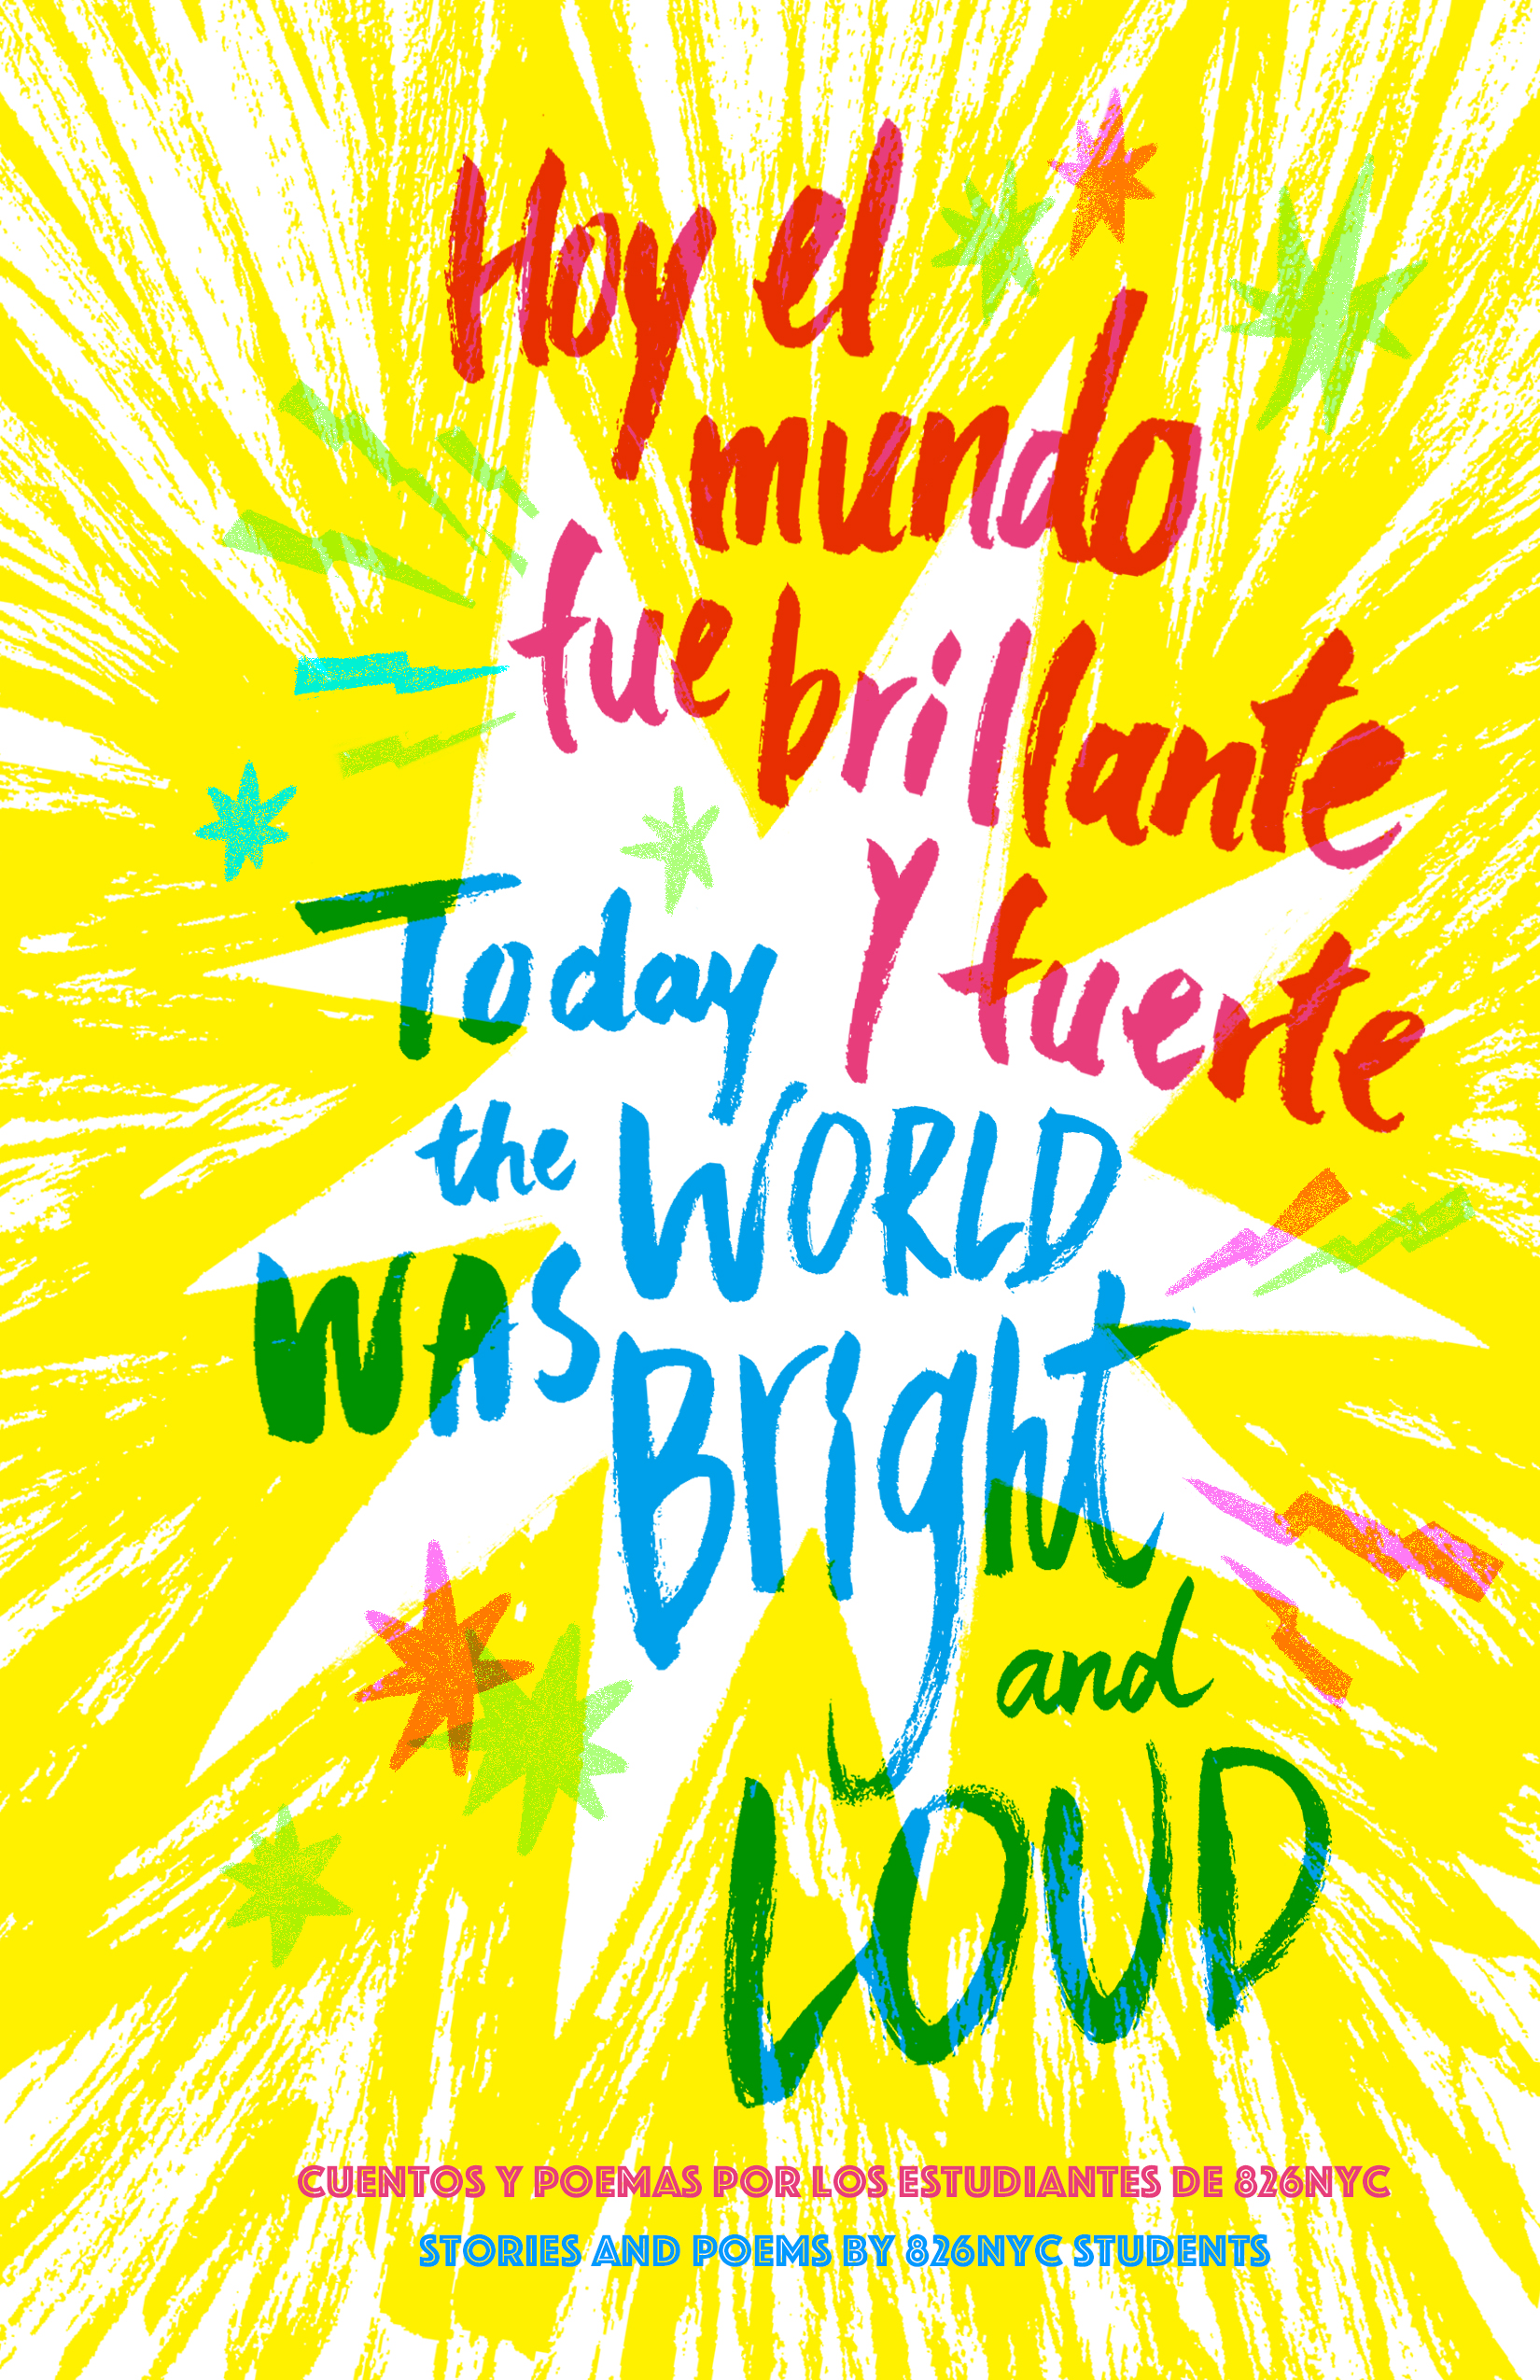 Hoy el
mundo
fue brillante
y fuerte
Today
the WORLD
WAS
Bright
and
LOUD
CUENTOS Y POEMAS POR LOS ESTUDIANTES DE 826NYC
STORIES AND POEMS BY 826NYC STUDENTS